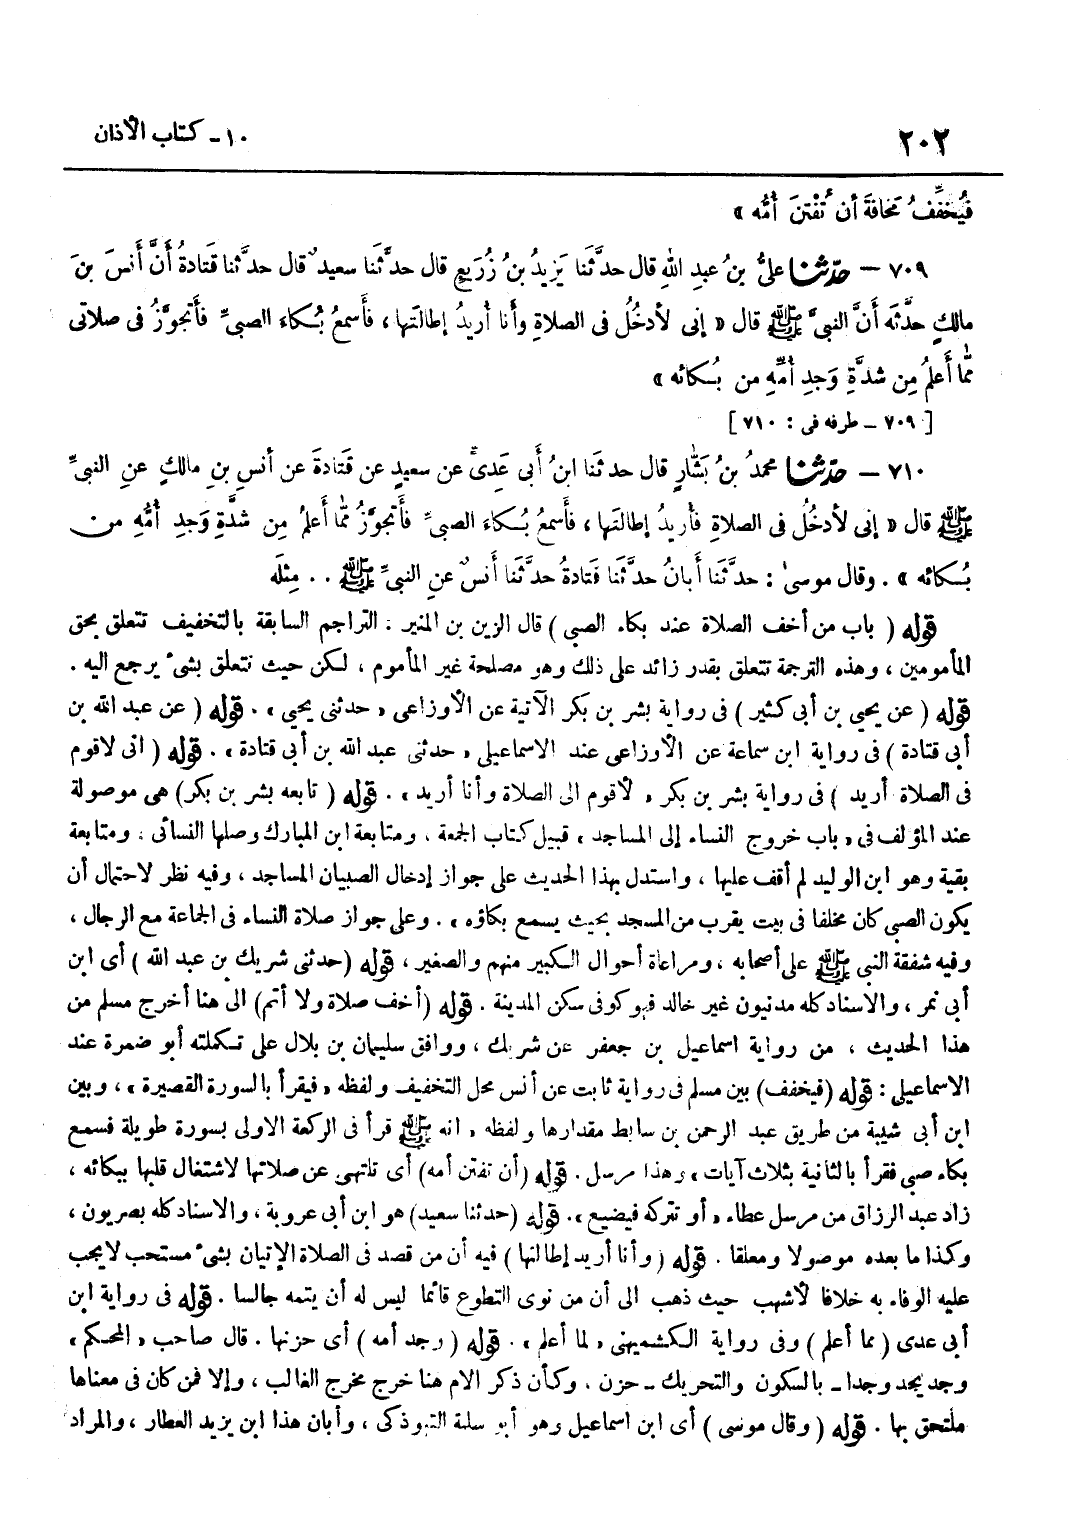 ٢٠٢
١٠ - كتاب الأذان
فيُخفِّفُ مخافةَ أن تُفْتنَ أمُّه »
٧٠٩ – حدّثنا علىُّ بنُ عبدِ اللهِ قال حدَّثنا يَزيدُ بنُ زُرَيعٍ قال حدَّثَنا سعيدٌ قال حدَّثنا قَتادةُ أنَّ أَنسَ بنَ
مالكٍ حدَّثه أنَّ النبىَّ ﷺ قال « إنى لأدخُلُ فى الصلاةِ وأنا أُريدُ إطالتَها ، فأَسمعُ بُكاءَ الصبىِّ فأتجوَّزُ فى صلاتى
ممّا أَعلمُ مِن شدَّةِ وَجدِ أُمِّهِ من بُكائه »
[ ٧٠٩ – طرفه فى : ٧١٠ ]
٧١٠ – حدّثنا محمدُ بنُ بَشّارٍ قال حدثَنا ابنُ أبى عَدِىّ عن سعيدٍ عن قَتادةَ عن أنسِ بنِ مالكٍ عنِ النبىِّ
ﷺ قال « إنى لأدخُلُ فى الصلاةِ فأُريدُ إطالتَها ، فأَسمعُ بُكاءَ الصبىِّ فأتجوَّزُ ممّا أَعلمُ مِن شدَّةِ وَجدِ أُمِّهِ من
بُكائه » . وقال موسىٰ : حدَّثَنا أبانُ حدَّثَنا قتادةُ حدَّثَنا أنسٌ عنِ النبىِّ ﷺ . . مِثلَه
قوله ( باب من أخف الصلاة عند بكاء الصبي ) قال الزين بن المنير : التراجم السابقة بالتخفيف تتعلق بحق
المأمومين ، وهذه الترجمة تتعلق بقدر زائد على ذلك وهو مصلحة غير المأموم ، لكن حيث تتعلق بشىء يرجع اليه .
قوله ( عن يحيى بن أبى كثير ) فى رواية بشر بن بكر الآتية عن الأوزاعى « حدثنى يحيى » . قوله ( عن عبد الله بن
أبى قتادة ) فى رواية ابن سماعة عن الأوزاعى عند الاسماعيلى « حدثنى عبد الله بن أبى قتادة » . قوله ( انى لاقوم
فى الصلاة أريد ) فى رواية بشر بن بكر « لأقوم الى الصلاة وأنا أريد » . قوله ( تابعه بشر بن بكر) هى موصولة
عند المؤلف فى « باب خروج النساء إلى المساجد ، قبيل كتاب الجمعة ، ومتابعة ابن المبارك وصلها النسائى ، ومتابعة
بقية وهو ابن الوليد لم أقف عليها ، واستدل بهذا الحديث على جواز إدخال الصبيان المساجد ، وفيه نظر لاحتمال أن
يكون الصبى كان مخلفا فى بيت يقرب من المسجد بحيث يسمع بكاؤه » . وعلى جواز صلاة النساء فى الجماعة مع الرجال ،
وفيه شفقة النبى ﷺ على أصحابه ، ومراعاة أحوال الكبير منهم والصغير ، قوله (حدثنى شريك بن عبد الله ) أى ابن
أبى نمر ، والاسناد كله مدنيون غير خالد فهو كوفى سكن المدينة . قوله (أخف صلاة ولا أتم) الى هنا أخرج مسلم من
هذا الحديث ، من رواية اسماعيل بن جعفر عن شريك ، ووافق سليمان بن بلال على تكملته أبو ضمرة عند
الاسماعيلى : قوله (فيخفف) بين مسلم فى رواية ثابت عن أنس محل التخفيف ولفظه « فيقرأ بالسورة القصيرة » ، وبين
ابن أبى شيبة من طريق عبد الرحمن بن سابط مقدارها ولفظه « انه ﷺ قرأ فى الركعة الاولى بسورة طويلة فسمع
بكاء صبى فقرأ بالثانية بثلاث آيات ، وهذا مرسل . قوله (أن تفتن أمه) أى تلتهى عن صلاتها لاشتغال قلبها ببكائه ،
زاد عبد الرزاق من مرسل عطاء « أو تتركه فيضيع ». قوله (حدثنا سعيد) هو ابن أبى عروبة ، والاسناد كله بصريون ،
وكذا ما بعده موصولا ومعلقا . قوله ( وأنا أريد إطالتها ) فيه أن من قصد فى الصلاة الإتيان بشىء مستحب لا يجب
عليه الوفاء به خلافا لأشهب حيث ذهب الى أن من نوى التطوع قائما ليس له أن يتمه جالسا . قوله فى رواية ابن
أبى عدى ( مما أعلم ) وفى رواية الكشميهنى « لما أعلم » . قوله ( وجد أمه ) أى حزنها . قال صاحب « المحكم »
وجد يجد وجدا - بالسكون والتحريك - حزن . وكأن ذكر الام هنا خرج مخرج الغالب ، وإلا فمن كان فى معناها
ملتحق بها . قوله ( وقال موسى ) أى ابن اسماعيل وهو أبو سلمة التبوذكى ، وأبان هذا ابن يزيد العطار ، والمراد